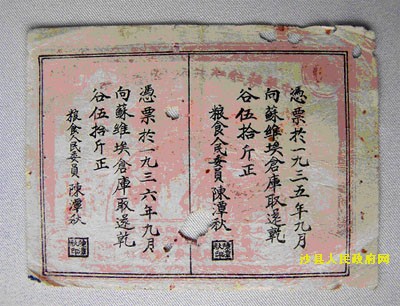 憑票於一九三五年九月
向蘇維埃倉庫取還乾
谷伍拾斤正
粮食人民委員 陳潭秋
憑票於一九三六年九月
向蘇維埃倉庫取還乾
谷伍拾斤正
粮食人民委員 陳潭秋
沙县人民政府网